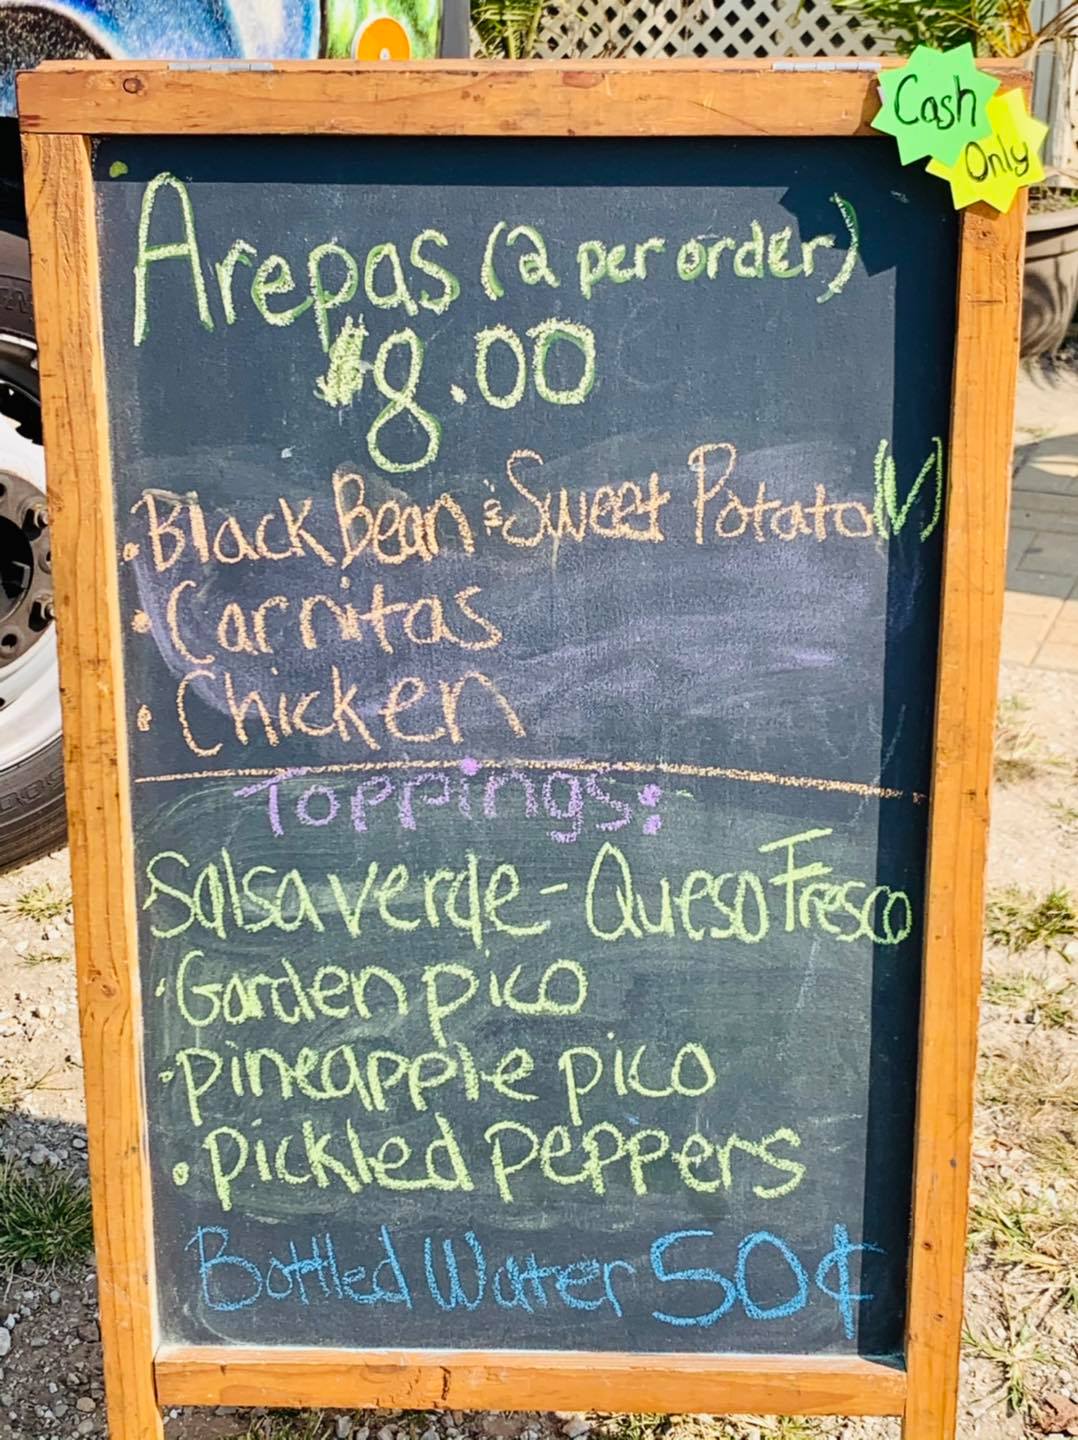 Cash
Only
Arepas (2 per order)
$8.00
• Black Bean & Sweet Potato (V)
• Carnitas
• Chicken
Toppings:
Salsa verde - Queso Fresco
• Garden pico
• pineapple pico
• pickled peppers
Bottled Water 50¢